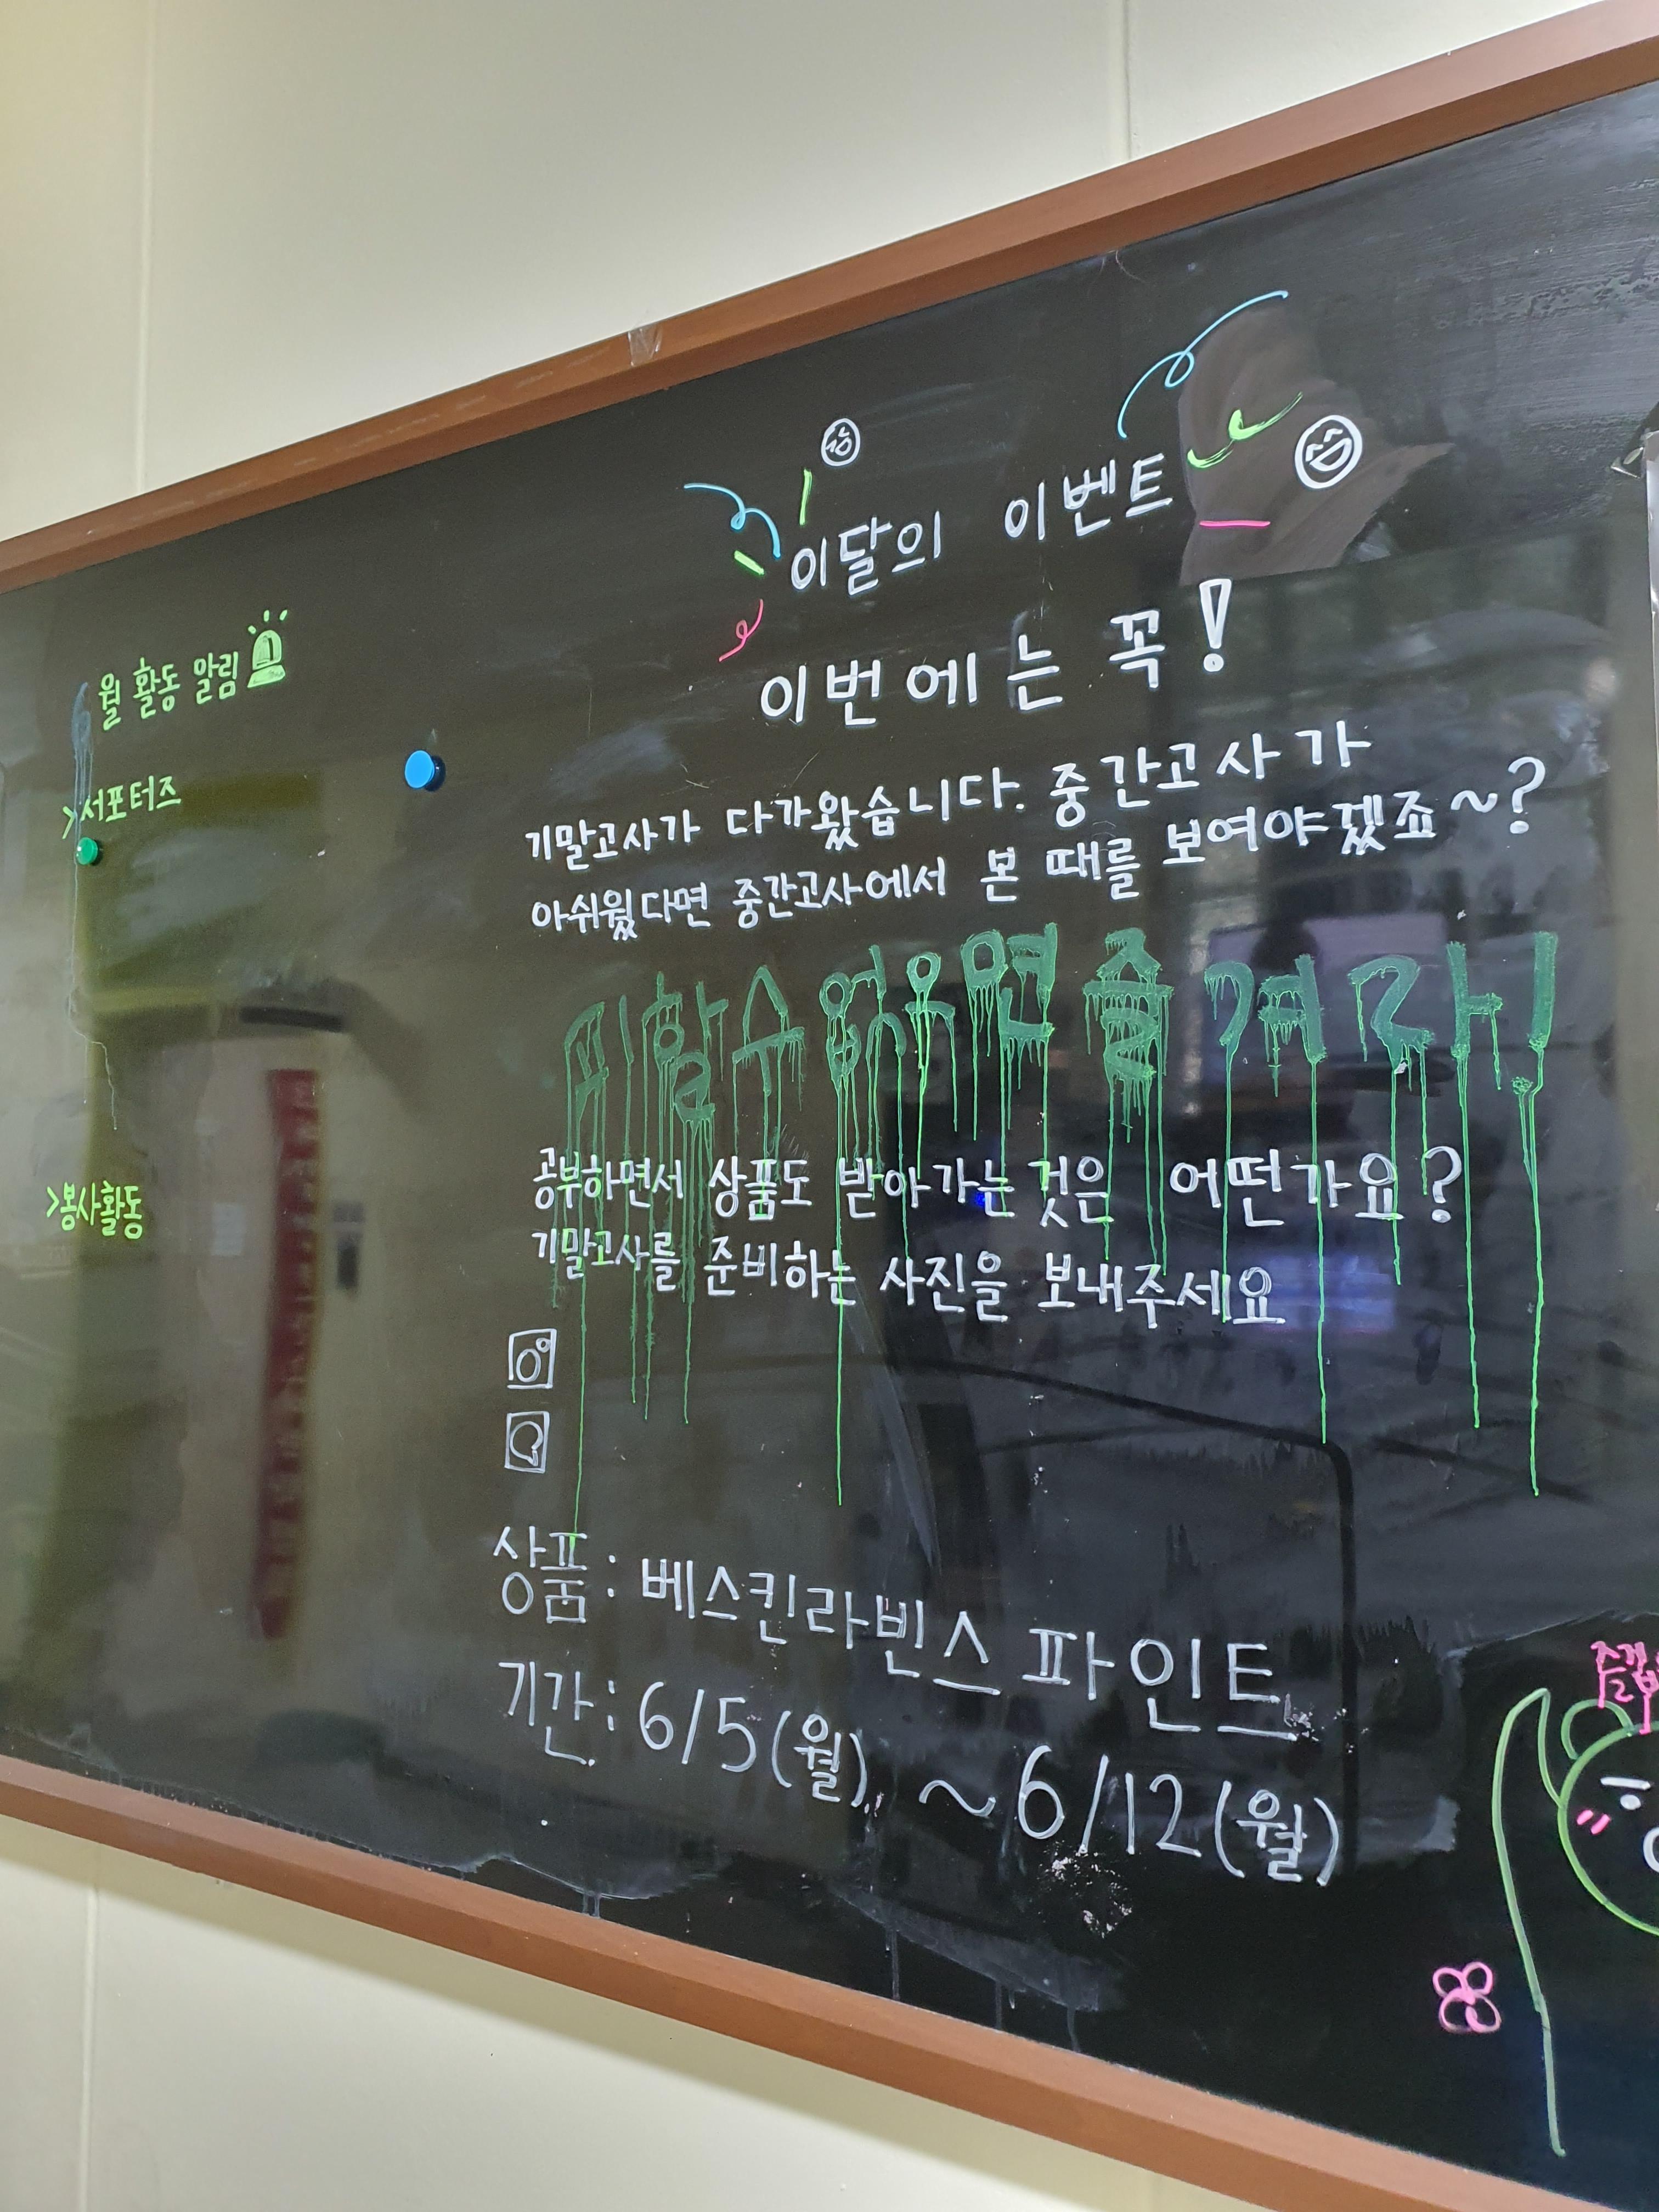 월 활동 알림
>서포터즈
>봉사활동
이달의 이벤트
이번에는 꼭!
기말고사가 다가왔습니다. 중간고사가
아쉬웠다면 중간고사에서 본 때를 보여야겠죠~?
피할수 없으면 즐겨라!
공부하면서 상품도 받아가는 것은 어떤가요?
기말고사를 준비하는 사진을 보내주세요
상품: 베스킨라빈스 파인트
기간: 6/5(월) ~6/12(월)